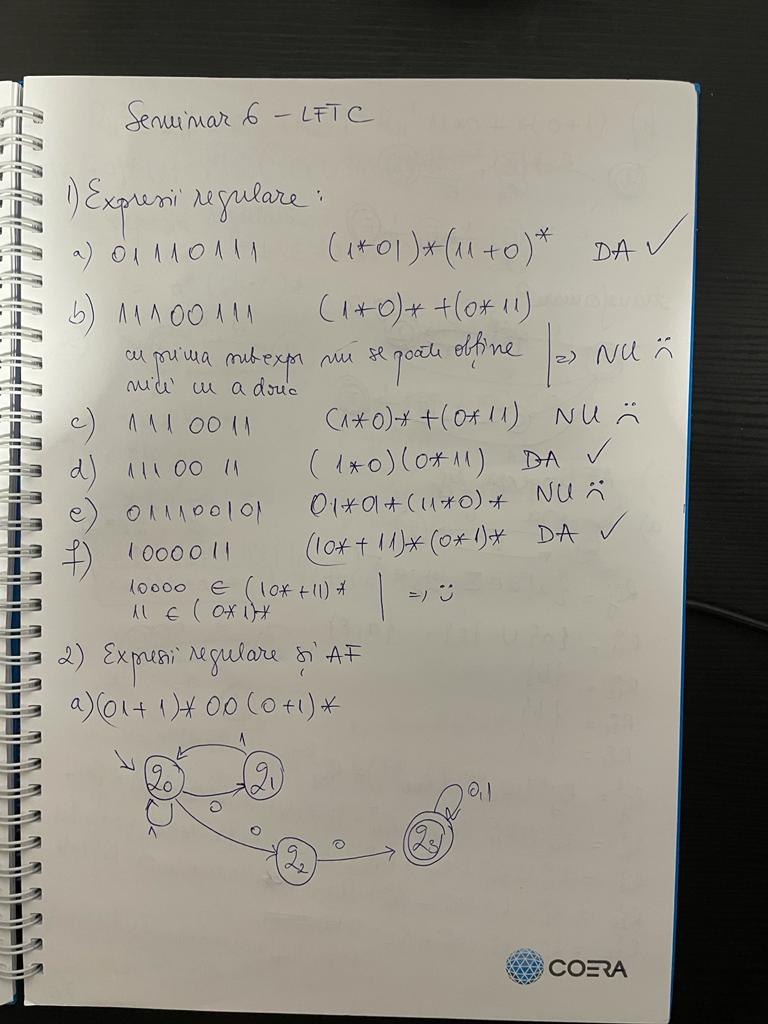 Seminar 6 - LFTC
1) Expresii regulare:
a) 01110111 (1*01)*(11+0)* DA ✓
b) 11100111 (1*0)*+(0*11)
cu prima subexpr nu se poate obține
nici cu a doua | => NU ☹
c) 1110011 (1*0)*+(0*11) NU ☹
d) 1110011 (1*0)(0*11) DA ✓
e) 011100101 01*01*(11*0)* NU ☹
f) 1000011 (10*+11)*(0*1)* DA ✓
10000 ∈ (10*+11)*
11 ∈ (0*1)* | => ☺
2) Expresii regulare și AF
a) (01+1)*00(0+1)*
1
q0 q1 0,1
0
1 0 0 q3
q2
COERA